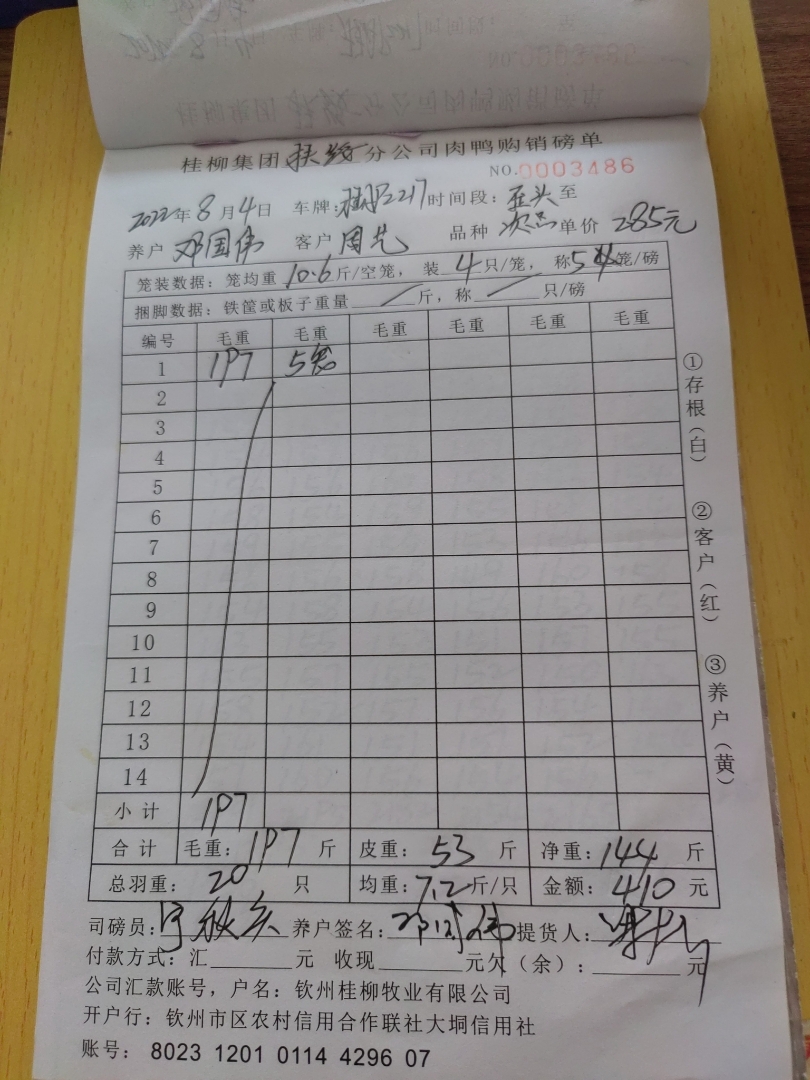 桂柳集团扶绥分公司肉鸭购销磅单
NO.0003486
2022年8月4日 车牌:2217 时间段: 至
养户 邓国伟 客户 周艺 品种 次品 单价 2.85元
笼装数据:笼均重10.6斤/空笼,装4只/笼,称5笼/磅
捆脚数据:铁筐或板子重量/斤,称/只/磅
编号 毛重 毛重 毛重 毛重 毛重 毛重
1 197 5笼
2
3
4
5
6
7
8
9
10
11
12
13
14
小计 197
合计 毛重:197斤 皮重:53斤 净重:144斤
总羽重:20只 均重:7.2斤/只 金额:410元
司磅员: 养户签名:邓国伟 提货人:
付款方式:汇____元 收现____元欠(余):____元
公司汇款账号,户名:钦州桂柳牧业有限公司
开户行:钦州市区农村信用合作联社大垌信用社
账号:8023 1201 0114 4296 07
①存根(白)
②客户(红)
③养户(黄)